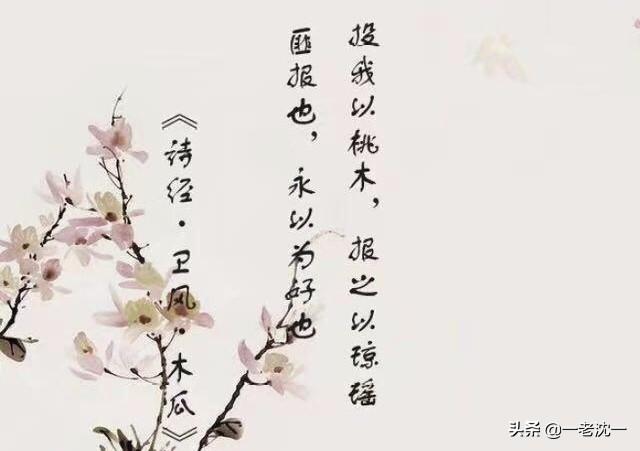 投我以桃木，报之以琼瑶
匪报也，永以为好也
《诗经·卫风·木瓜》
头条 @一老沈一